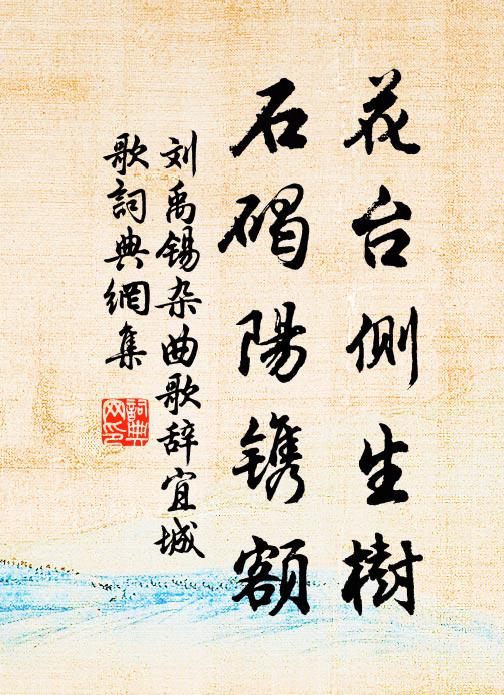 花台側生樹
石碣陽镌額
刘禹锡杂曲歌辞宜城
歌詞典網集
詞典
网印